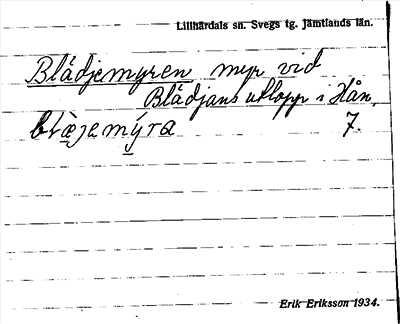 Lillhärdals sn. Svegs tg. Jämtlands län.
Blädjemyren myr vid
Blädjans utlopp i Hån,
bræ̀jemýra 7.
Erik Eriksson 1934.